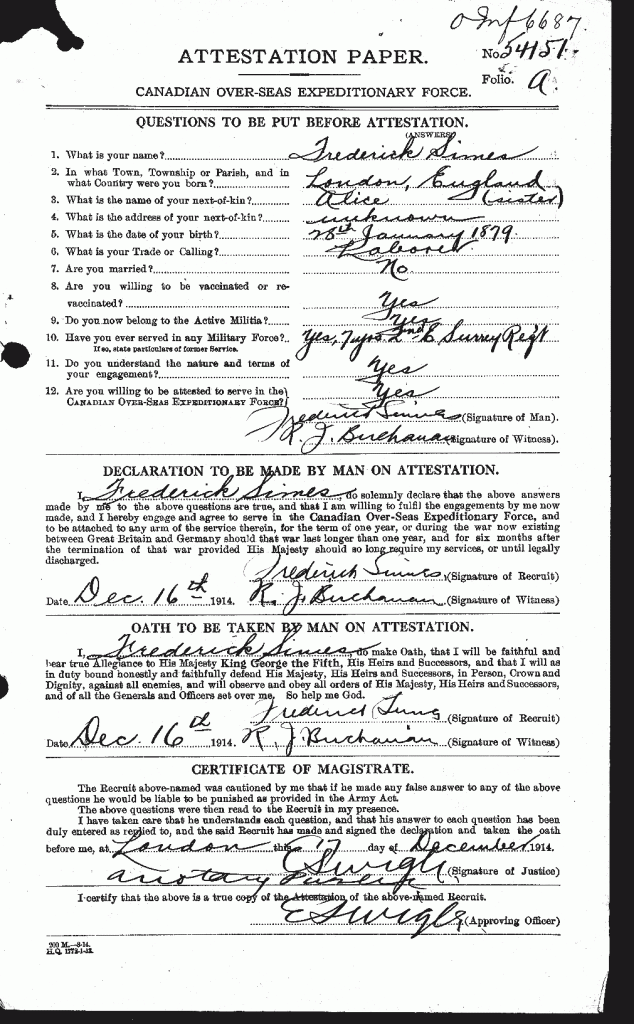 O Inf 6687.
ATTESTATION PAPER.
No. 54151.
Folio. A
CANADIAN OVER-SEAS EXPEDITIONARY FORCE.
QUESTIONS TO BE PUT BEFORE ATTESTATION.
(ANSWERS)
1. What is your name? Frederick Simes
2. In what Town, Township or Parish, and in
what Country were you born? London, England
3. What is the name of your next-of-kin? Alice (sister)
4. What is the address of your next-of-kin? unknown
5. What is the date of your birth? 28th January 1879
6. What is your Trade or Calling? Laborer
7. Are you married? No
8. Are you willing to be vaccinated or re-
vaccinated? Yes
9. Do you now belong to the Active Militia? Yes
10. Have you ever served in any Military Force? Yes, 7 yrs 2nd E Surrey Regt
If so, state particulars of former Service.
11. Do you understand the nature and terms of
your engagement? Yes
12. Are you willing to be attested to serve in the
CANADIAN OVER-SEAS EXPEDITIONARY FORCE? Yes
Frederick Simes (Signature of Man).
R. J. Buchanan (Signature of Witness).
DECLARATION TO BE MADE BY MAN ON ATTESTATION.
I, Frederick Simes, do solemnly declare that the above answers
made by me to the above questions are true, and that I am willing to fulfil the engagements by me now
made, and I hereby engage and agree to serve in the Canadian Over-Seas Expeditionary Force, and
to be attached to any arm of the service therein, for the term of one year, or during the war now existing
between Great Britain and Germany should that war last longer than one year, and for six months after
the termination of that war provided His Majesty should so long require my services, or until legally
discharged.
Frederick Simes (Signature of Recruit)
Date Dec. 16th 1914. R. J. Buchanan (Signature of Witness)
OATH TO BE TAKEN BY MAN ON ATTESTATION.
I, Frederick Simes, do make Oath, that I will be faithful and
bear true Allegiance to His Majesty King George the Fifth, His Heirs and Successors, and that I will as
in duty bound honestly and faithfully defend His Majesty, His Heirs and Successors, in Person, Crown and
Dignity, against all enemies, and will observe and obey all orders of His Majesty, His Heirs and Successors,
and of all the Generals and Officers set over me. So help me God.
Frederick Simes (Signature of Recruit)
Date Dec. 16th 1914. R. J. Buchanan (Signature of Witness)
CERTIFICATE OF MAGISTRATE.
The Recruit above-named was cautioned by me that if he made any false answer to any of the above
questions he would be liable to be punished as provided in the Army Act.
The above questions were then read to the Recruit in my presence.
I have taken care that he understands each question, and that his answer to each question has been
duly entered as replied to, and the said Recruit has made and signed the declaration and taken the oath
before me, at London this 17 day of December 1914.
E S Wigle (Signature of Justice)
a notary Public
I certify that the above is a true copy of the Attestation of the above-named Recruit.
E S Wigle (Approving Officer)
200 M.—8-14.
H.Q. 1772-1-13.